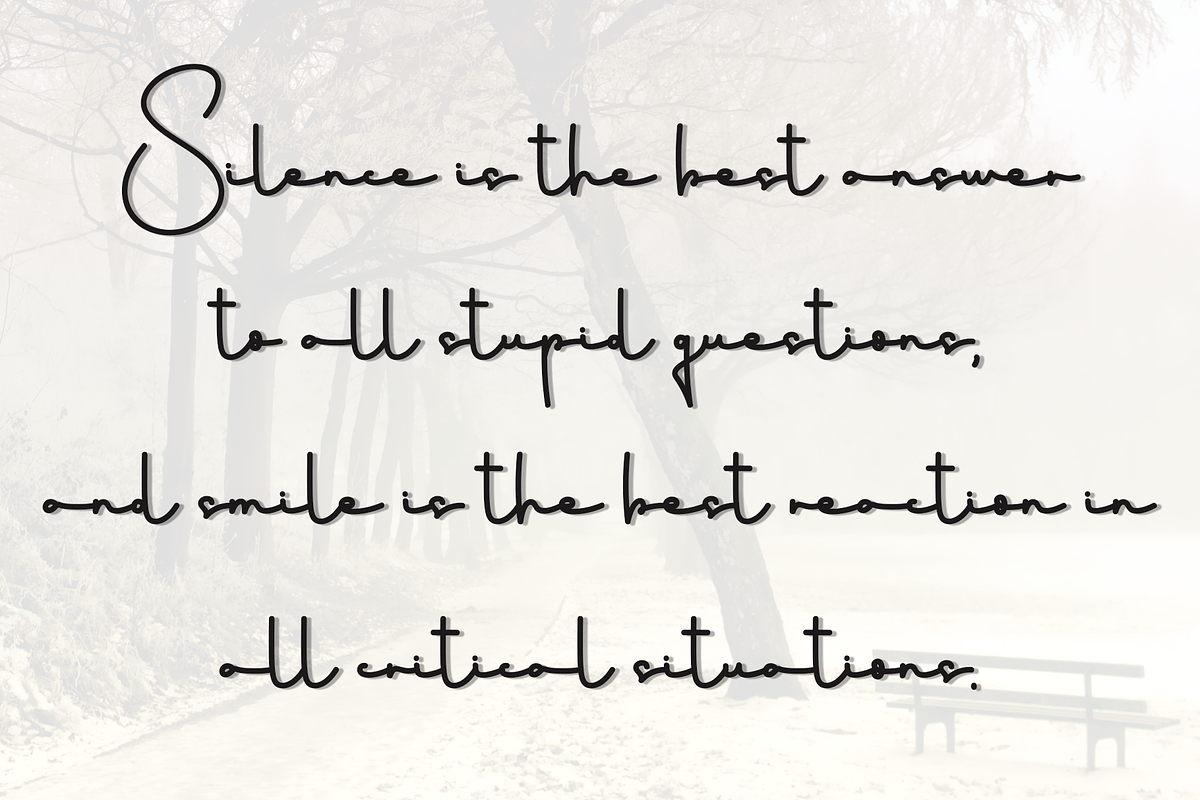 Silence is the best answer
to all stupid questions,
and smile is the best reaction in
all critical situations.